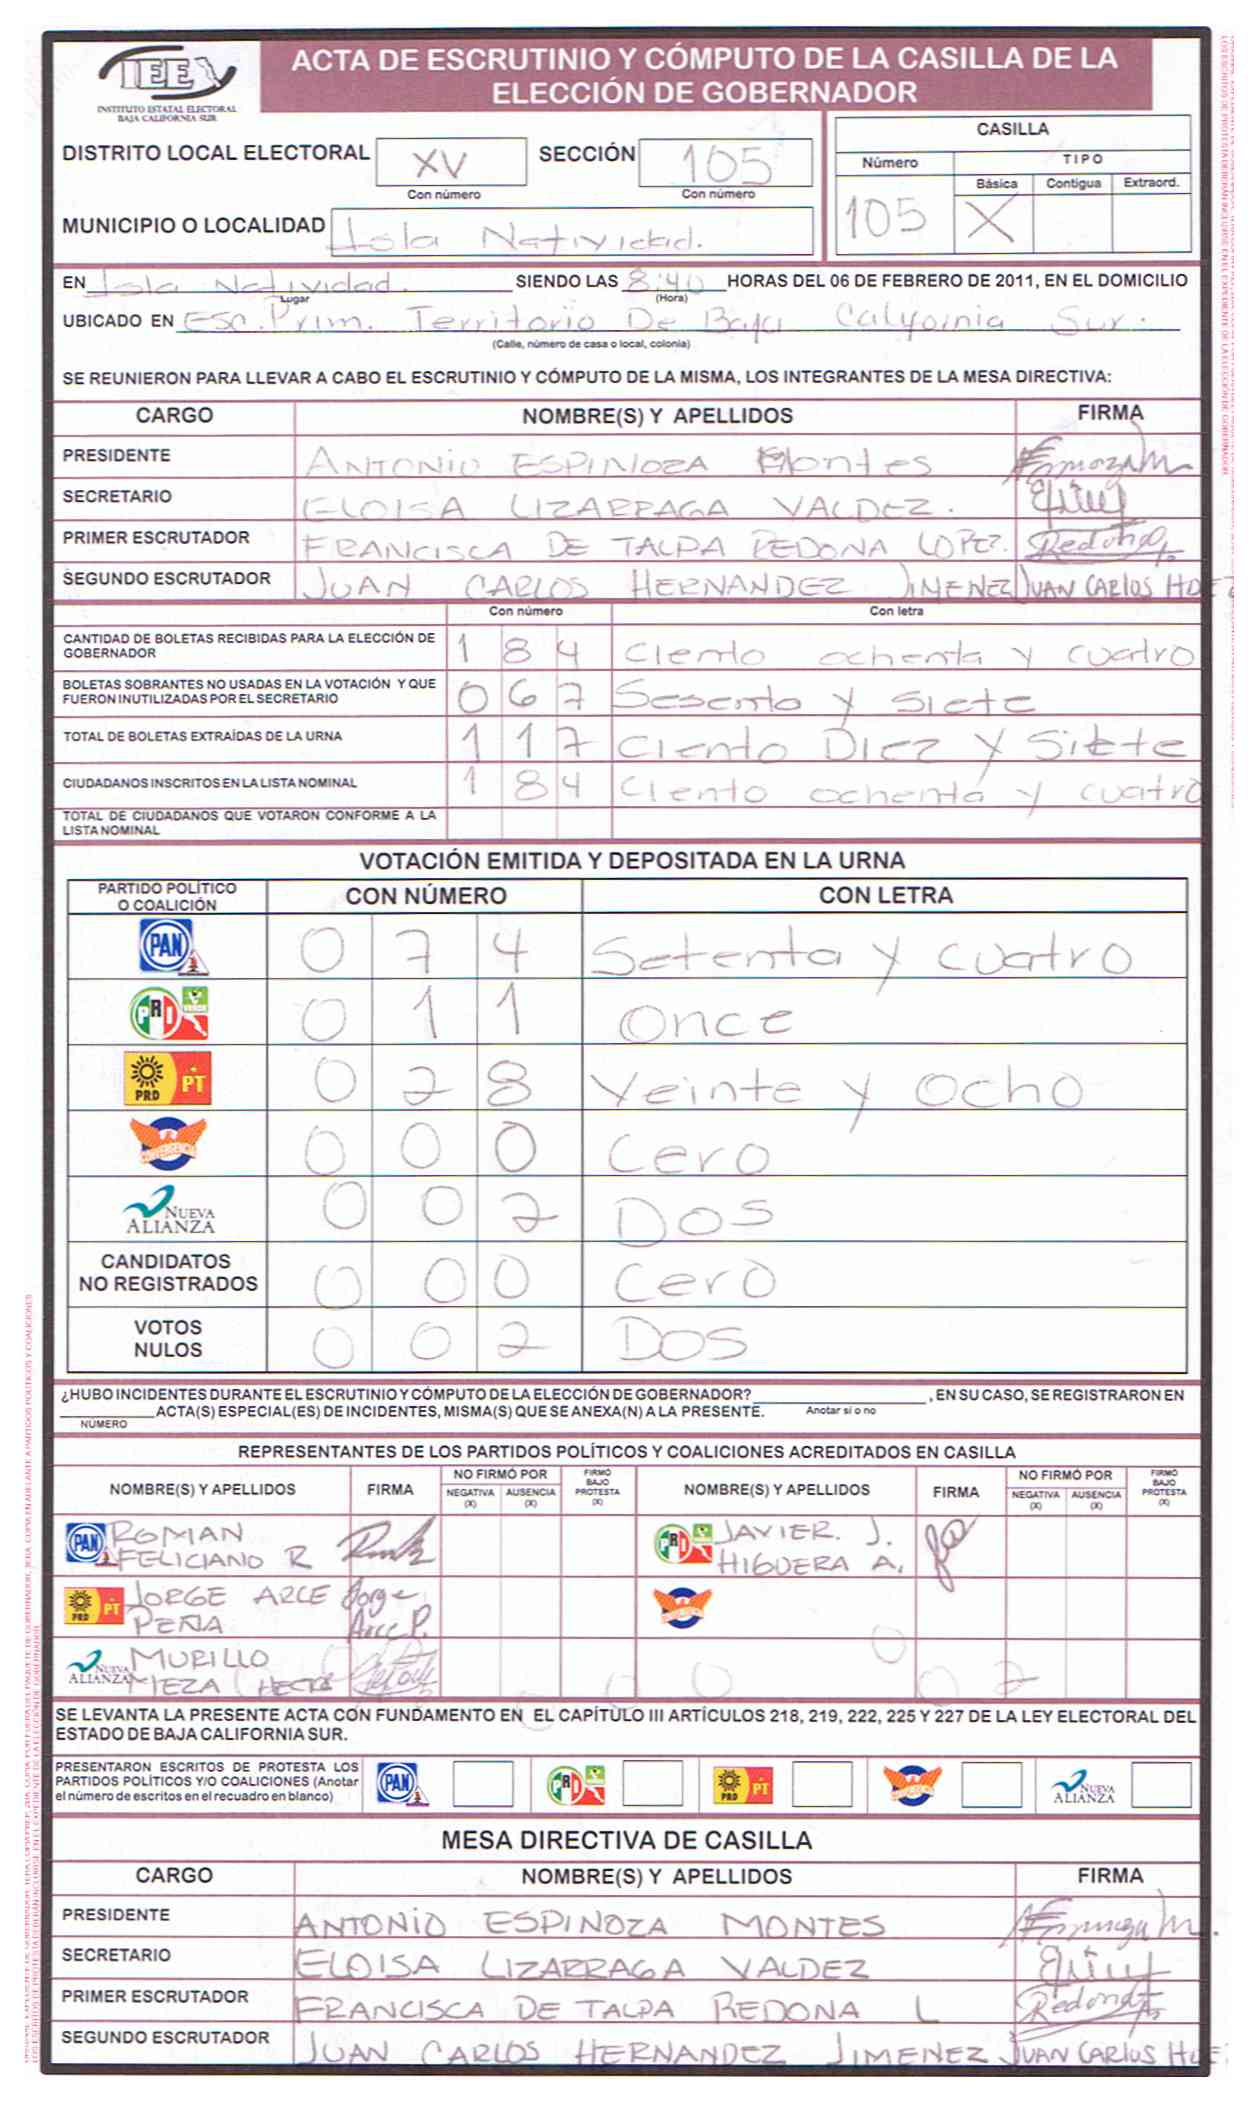 IEE
INSTITUTO ESTATAL ELECTORAL
BAJA CALIFORNIA SUR
ACTA DE ESCRUTINIO Y CÓMPUTO DE LA CASILLA DE LA
ELECCIÓN DE GOBERNADOR
DISTRITO LOCAL ELECTORAL XV SECCIÓN 105
Con número Con número
MUNICIPIO O LOCALIDAD Isla Natividad.
CASILLA
Número TIPO
Básica Contigua Extraord.
105 X
EN Isla Natividad. SIENDO LAS 8:40 HORAS DEL 06 DE FEBRERO DE 2011, EN EL DOMICILIO
Lugar (Hora)
UBICADO EN Esc. Prim. Territorio De Baja California Sur.
(Calle, número de casa o local, colonia)
SE REUNIERON PARA LLEVAR A CABO EL ESCRUTINIO Y CÓMPUTO DE LA MISMA, LOS INTEGRANTES DE LA MESA DIRECTIVA:
CARGO NOMBRE(S) Y APELLIDOS FIRMA
PRESIDENTE ANTONIO ESPINOZA Montes
SECRETARIO ELOISA LIZARRAGA VALDEZ.
PRIMER ESCRUTADOR FRANCISCA DE TALPA REDONA LOPEZ. Redona
SEGUNDO ESCRUTADOR JUAN CARLOS HERNANDEZ JIMENEZ JUAN CARLOS
Con número Con letra
CANTIDAD DE BOLETAS RECIBIDAS PARA LA ELECCIÓN DE
GOBERNADOR 1 8 4 Ciento ochenta y cuatro
BOLETAS SOBRANTES NO USADAS EN LA VOTACIÓN Y QUE
FUERON INUTILIZADAS POR EL SECRETARIO 0 6 7 Sesenta y siete
TOTAL DE BOLETAS EXTRAÍDAS DE LA URNA 1 1 7 Ciento Diez y Siete
CIUDADANOS INSCRITOS EN LA LISTA NOMINAL 1 8 4 Ciento ochenta y cuatro
TOTAL DE CIUDADANOS QUE VOTARON CONFORME A LA
LISTA NOMINAL
VOTACIÓN EMITIDA Y DEPOSITADA EN LA URNA
PARTIDO POLÍTICO
O COALICIÓN CON NÚMERO CON LETRA
PAN 0 7 4 Setenta y cuatro
PRI VERDE 0 1 1 Once
PRD PT 0 2 8 Veinte y Ocho
CONVERGENCIA 0 0 0 Cero
NUEVA ALIANZA 0 0 2 Dos
CANDIDATOS
NO REGISTRADOS 0 0 0 Cero
VOTOS
NULOS 0 0 2 Dos
¿HUBO INCIDENTES DURANTE EL ESCRUTINIO Y CÓMPUTO DE LA ELECCIÓN DE GOBERNADOR? , EN SU CASO, SE REGISTRARON EN
ACTA(S) ESPECIAL(ES) DE INCIDENTES, MISMA(S) QUE SE ANEXA(N) A LA PRESENTE. Anotar sí o no
NÚMERO
REPRESENTANTES DE LOS PARTIDOS POLÍTICOS Y COALICIONES ACREDITADOS EN CASILLA
NOMBRE(S) Y APELLIDOS FIRMA NO FIRMÓ POR NEGATIVA (X) AUSENCIA (X) FIRMÓ BAJO PROTESTA (X) NOMBRE(S) Y APELLIDOS FIRMA NO FIRMÓ POR NEGATIVA (X) AUSENCIA (X) FIRMÓ BAJO PROTESTA (X)
PAN ROMAN
FELICIANO R
PRI JAVIER. J.
HIGUERA A.
PRD PT JORGE ARCE
PEÑA Jorge
Arce P.
NUEVA ALIANZA MURILLO
MEZA HECTOR
0 0 0 0 2
SE LEVANTA LA PRESENTE ACTA CON FUNDAMENTO EN EL CAPÍTULO III ARTÍCULOS 218, 219, 222, 225 Y 227 DE LA LEY ELECTORAL DEL
ESTADO DE BAJA CALIFORNIA SUR.
PRESENTARON ESCRITOS DE PROTESTA LOS
PARTIDOS POLÍTICOS Y/O COALICIONES (Anotar
el número de escritos en el recuadro en blanco)
PAN PRI PRD PT NUEVA ALIANZA
MESA DIRECTIVA DE CASILLA
CARGO NOMBRE(S) Y APELLIDOS FIRMA
PRESIDENTE ANTONIO ESPINOZA MONTES
SECRETARIO ELOISA LIZARRAGA VALDEZ
PRIMER ESCRUTADOR FRANCISCA DE TALPA REDONA L Redona
SEGUNDO ESCRUTADOR JUAN CARLOS HERNANDEZ JIMENEZ JUAN CARLOS